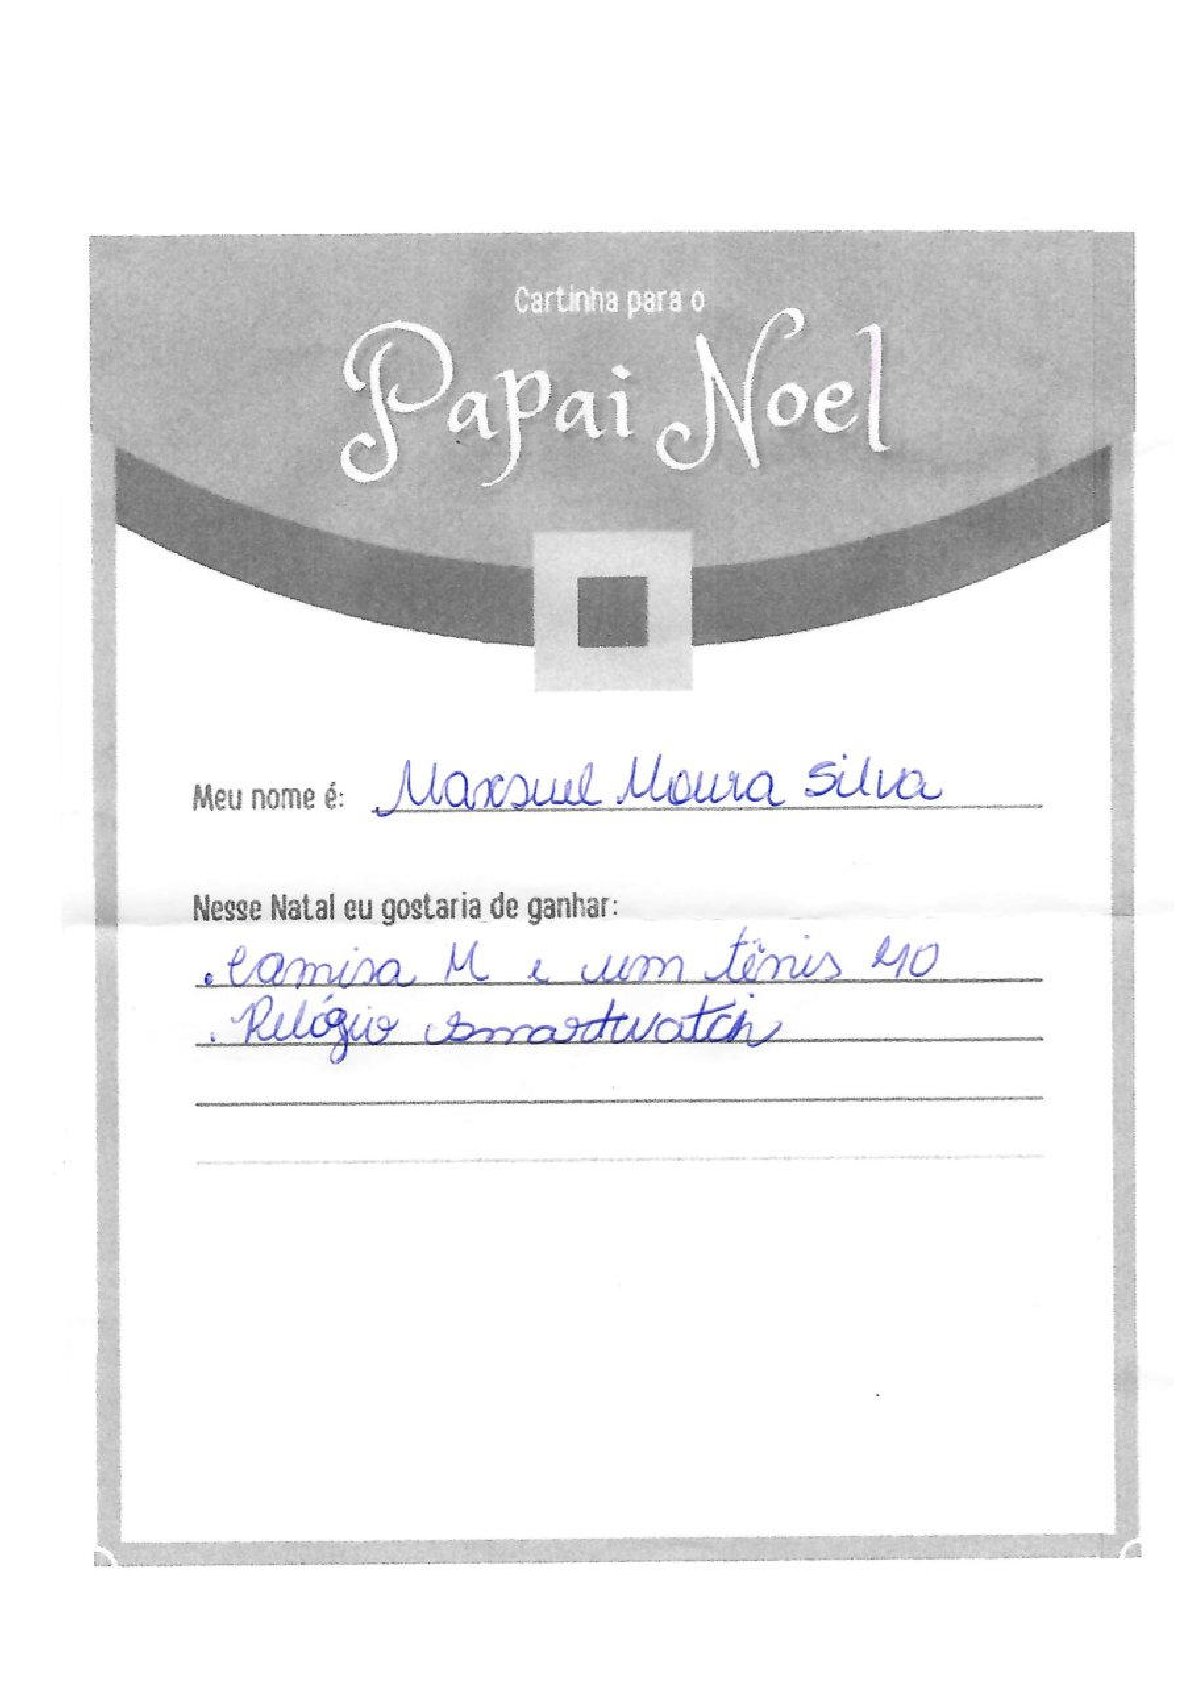 Cartinha para o
Papai Noel
Meu nome é: Maxsuel Moura Silva
Nesse Natal eu gostaria de ganhar:
. Camisa M e um tênis 40
. Relógio smartwatch